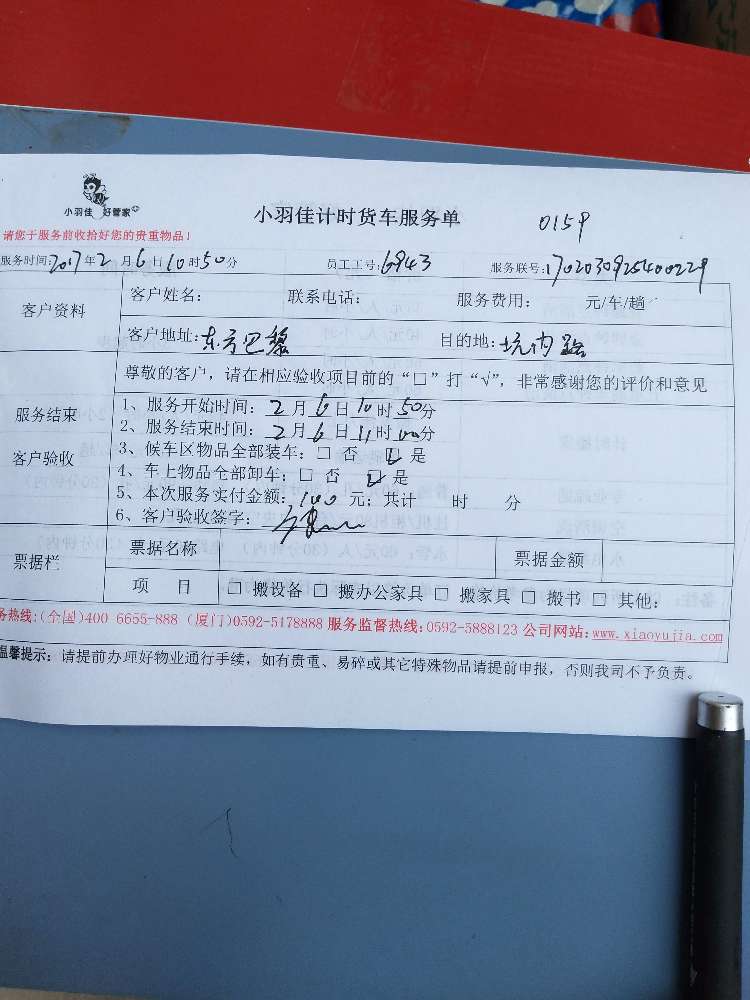 小羽佳 好管家
小羽佳计时货车服务单 0159
请您于服务前收拾好您的贵重物品！
服务时间:2017年2月6日10时50分 员工工号:6943 服务联号:1702030925400229
客户资料 客户姓名： 联系电话： 服务费用： 元/车/趟
客户地址:东方巴黎 目的地:坑内路
尊敬的客户，请在相应验收项目前的“□”打“√”，非常感谢您的评价和意见
服务结束
客户验收
1、服务开始时间：2月6日10时50分
2、服务结束时间：2月6日11时00分
3、候车区物品全部装车：□ 否 ☑ 是
4、车上物品仝部卸车：□ 否 ☑ 是
5、本次服务实付金额：100元；共计 时 分
6、客户验收签字：
票据栏 票据名称 票据金额
项 目 □ 搬设备 □ 搬办公家具 □ 搬家具 □ 搬书 □ 其他：
务热线:(全国)400 6655-888 (厦门)0592-5178888 服务监督热线:0592-5888123 公司网站:www.xiaoyujia.com
温馨提示：请提前办理好物业通行手续，如有贵重、易碎或其它特殊物品请提前申报，否则我司不予负责。